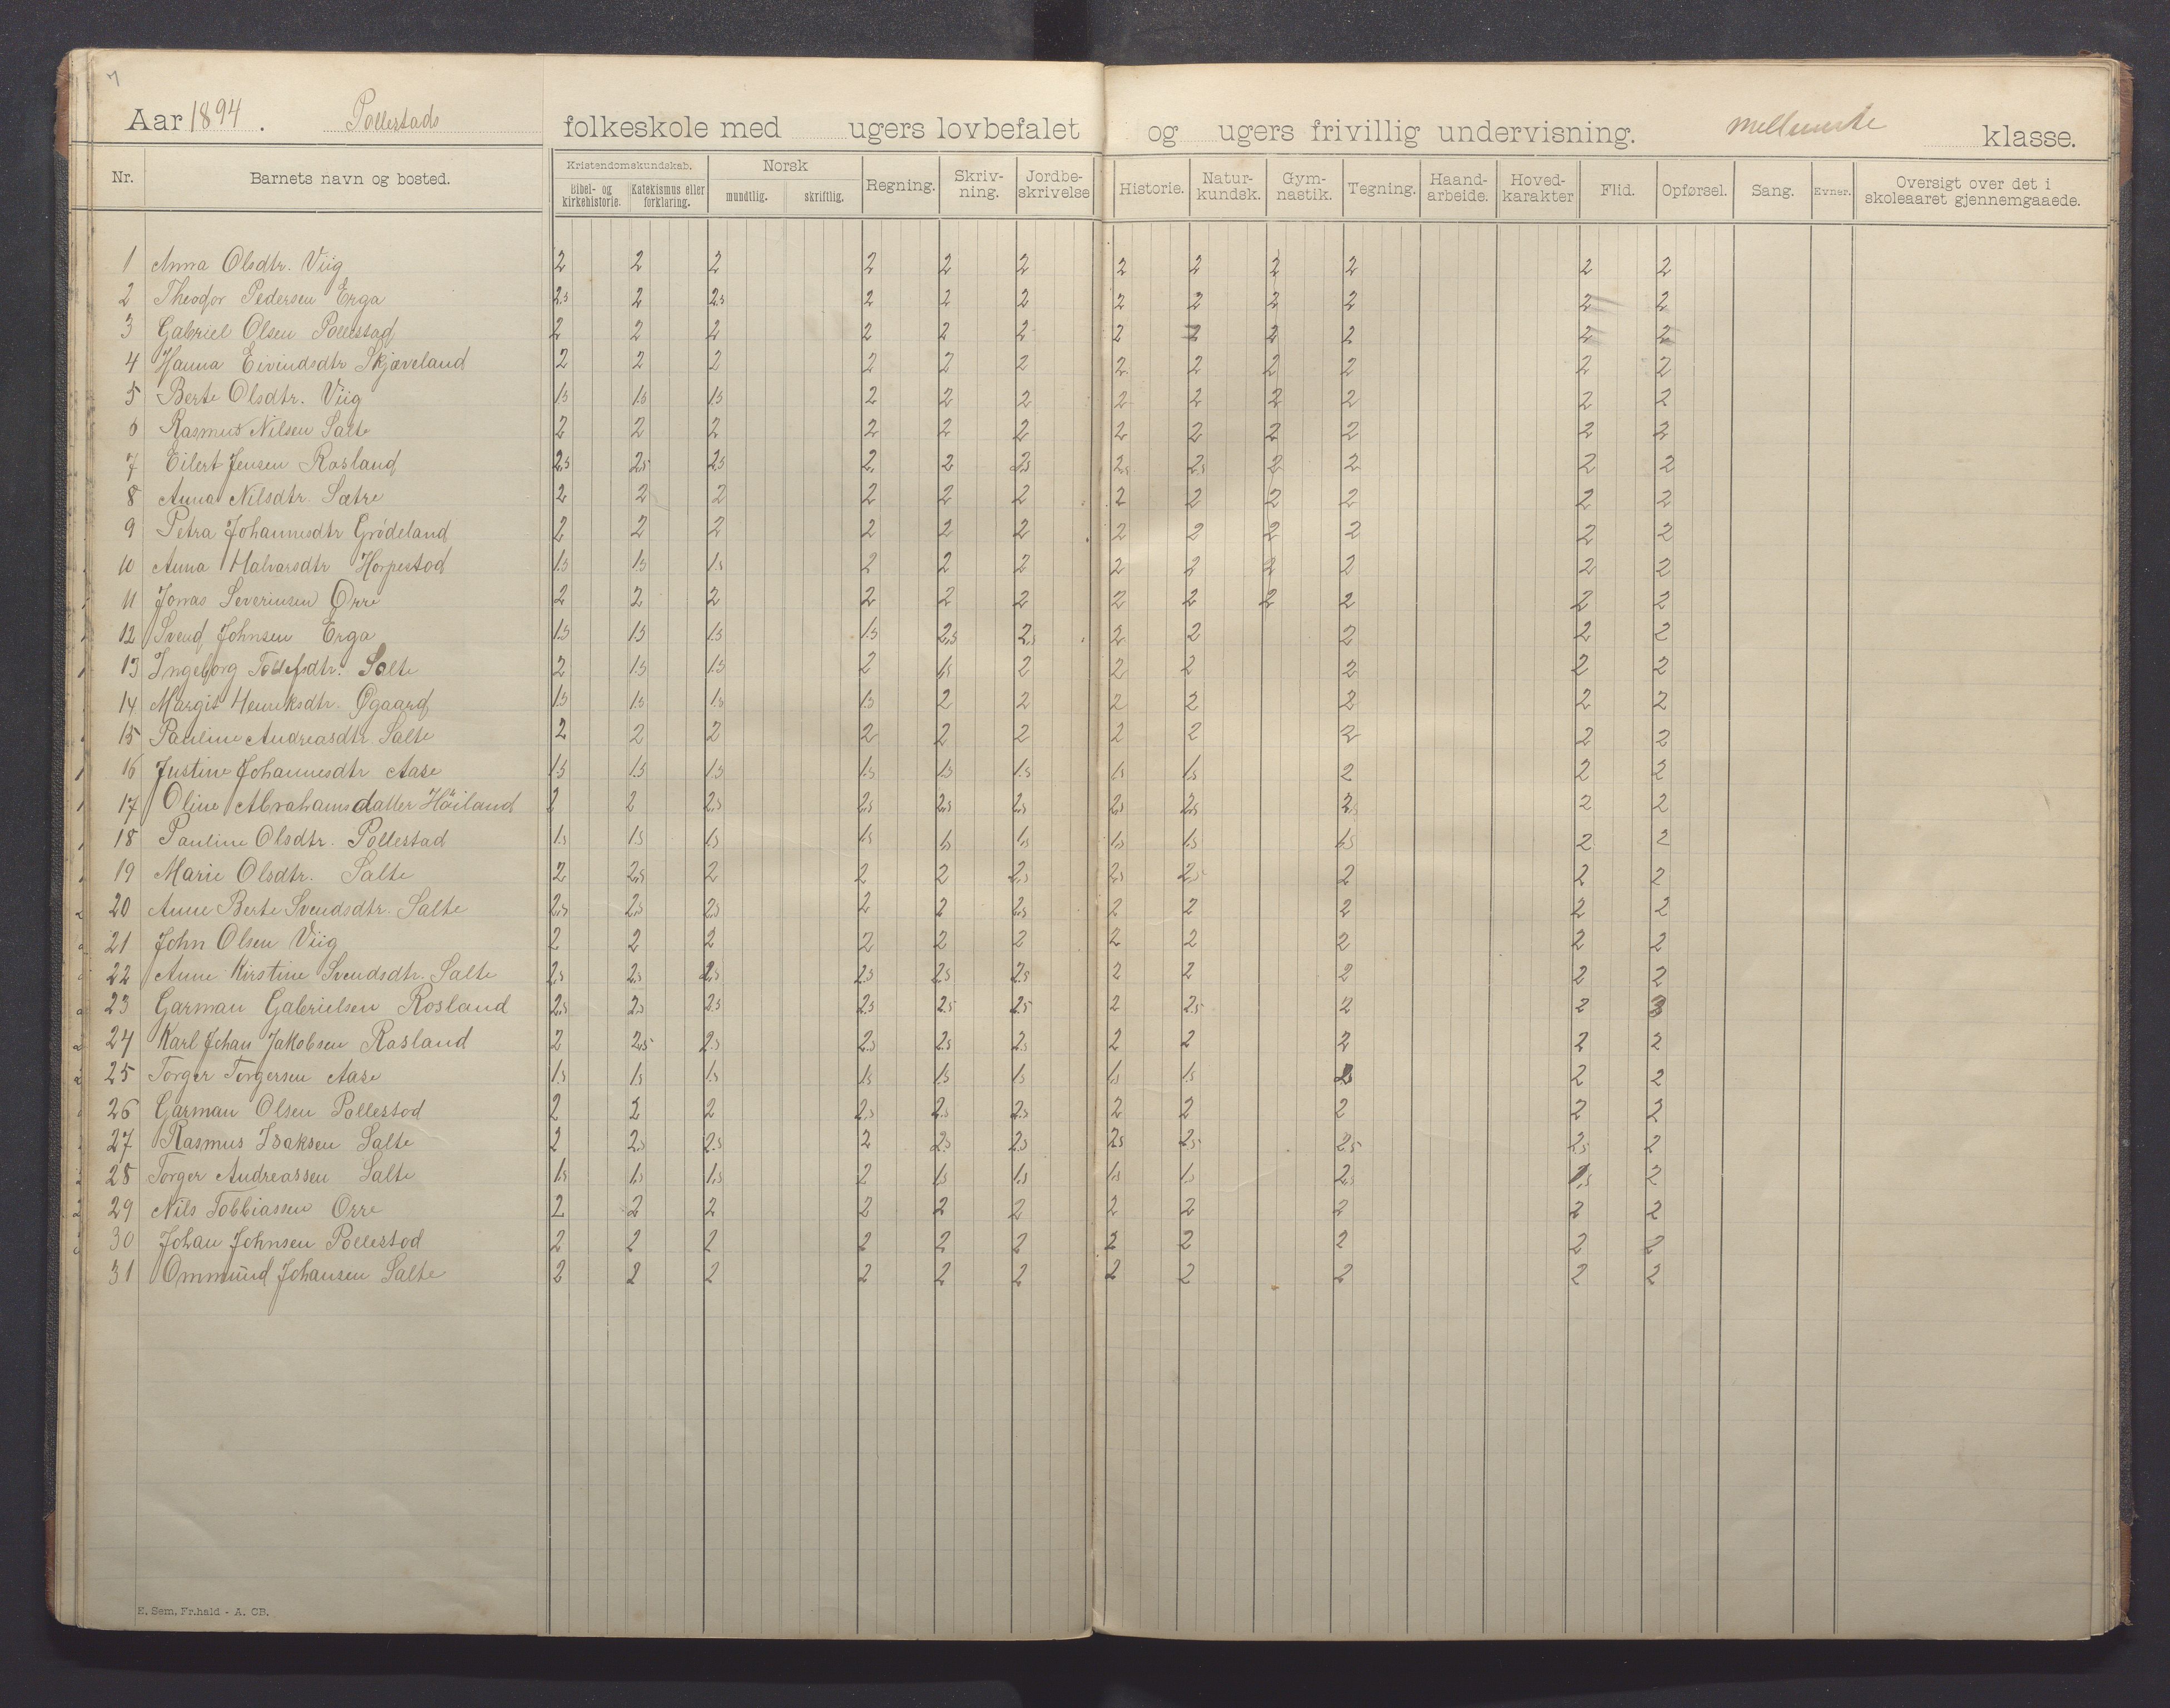 7
Aar 1894. Pollestads folkeskole med ugers lovbefalet og ugers frivillig undervisning. mellemste klasse.
Nr. Barnets navn og bosted. Kristendomskundskab. Bibel- og kirkehistorie. Katekismus eller forklaring. Norsk mundtlig. skriftlig. Regning. Skriv-ning. Jordbe-skrivelse Historie. Natur-kundsk. Gym-nastik. Tegning. Haand-arbeide. Hoved-karakter Flid. Opførsel. Sang. Evner. Oversigt over det i skoleaaret gjennemgaaede.
1 Anna Olsdtr. Viig 2 2 2 2 2 2 2 2 2 2 2 2
2 Theodor Pedersen Erga 2.5 2 2.5 2 2 2 2 2 2 2 2 2
3 Gabriel Olsen Pollestad 2 2 2 2 2 2 2 2 2 2 2 2
4 Hanna Eivindsdtr Skjæveland 2 2 2 2 2 2 2 2 2 2 2 2
5 Berte Olsdtr. Viig 1.5 1.5 1.5 2 2 2 2 2 2 2 2 2
6 Rasmus Nilsen Salte 2 2 2 2 2 2 2 2 2 2 2 2
7 Eilert Jensen Rosland 2.5 2.5 2.5 2 2 2.5 2.5 2.5 2 2 2 2
8 Anna Nilsdtr. Sætre 2 2 2 2 2 2 2 2 2 2 2 2
9 Petra Johannesdtr Grödeland 2 2 2 2 2 2 2 2 2 2 2 2
10 Anna Halvarsdtr Horpestod 1.5 1.5 1.5 2 2 2 2 2 2 2 2 2
11 Jonas Severinsen Orre 2 2 2 2 2 2 2 2 2 2 2 2
12 Svend Johnsen Erga 1.5 1.5 1.5 1.5 2.5 2.5 2 2 2 2 2
13 Ingeborg Tollefsdtr. Salte 2 1.5 1.5 2 1.5 2 2 2 2 2 2
14 Margit Henriksdtr. Øgaard 1.5 1.5 1.5 1.5 2 2 2 2 2 2 2
15 Pauline Andreasdtr. Salte 2 2 2 2 2 2 2 2 2 2 2
16 Justine Johannesdtr Aase 1.5 1.5 1.5 1.5 1.5 1.5 1.5 1.5 2 2 2
17 Oline Abrahamsdatter Höiland 2 2 2.5 2.5 2.5 2.5 2.5 2.5 2.5 2 2
18 Pauline Olsdtr. Pollestad 1.5 1.5 1.5 1.5 1.5 1.5 1.5 1.5 1.5 2 2
19 Marie Olsdtr. Salte 2 2.5 2 2 2 2.5 2.5 2.5 2 2 2
20 Anne Berte Svendsdtr. Salte 2.5 2.5 2.5 2 2 2.5 2 2 2 2 2
21 John Olsen Viig 2 2 2 2 2 2 2 2 2 2 2
22 Anne Kirstine Svendsdtr. Salte 2.5 2.5 2.5 2.5 2.5 2.5 2 2 2 2 2
23 Garman Gabrielsen Rosland 2.5 2.5 2.5 2.5 2.5 2.5 2 2.5 2 2 3
24 Karl Johan Jakobsen Rosland 2 2.5 2.5 2.5 2.5 2.5 2 2 2 2 2
25 Torger Torgersen Aase 1.5 1.5 1.5 1.5 1.5 1.5 1.5 1.5 2.5 2 2
26 Garman Olsen Pollestod 2 2 2 2.5 2.5 2.5 2 2 2 2 2
27 Rasmus Isaksen Salte 2 2.5 2.5 2 2.5 2.5 2.5 2.5 2.5 2.5 2
28 Torger Andreassen Salte 1.5 1.5 1.5 2 1.5 1.5 1.5 1.5 2.5 1.5 2
29 Nils Tobbiassen Orre 2 2 2 2 2 2 2 2 2 2 2
30 Johan Johnsen Pollestod 2 2 2 2 2 2 2 2 2 2 2
31 Ommund Johansen Salte 2 2 2 2 2 2 2 2 2 2 2
E. Sem, Fr.hald - A. CB.